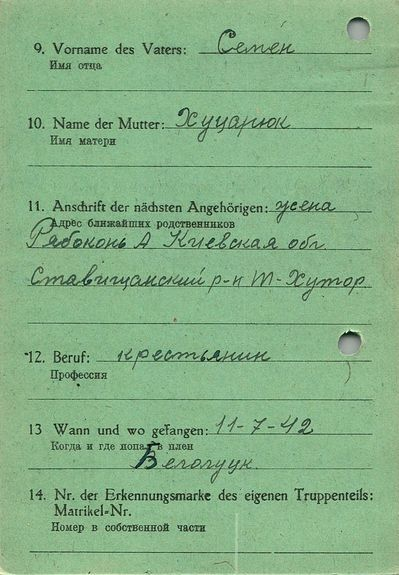 9. Vorname des Vaters: Семен
Имя отца
10. Name der Mutter: Хуцарюк
Имя матери
11. Anschrift der nächsten Angehörigen: жена
Адрес ближайших родственников
Рябоконь А Киевская обл
Ставищанский р-н Т-Хутор
12. Beruf: крестьянин
Профессия
13 Wann und wo gefangen: 11-7-42
Когда и где попал в плен
14. Nr. der Erkennungsmarke des eigenen Truppenteils:
Matrikel-Nr.
Номер в собственной части